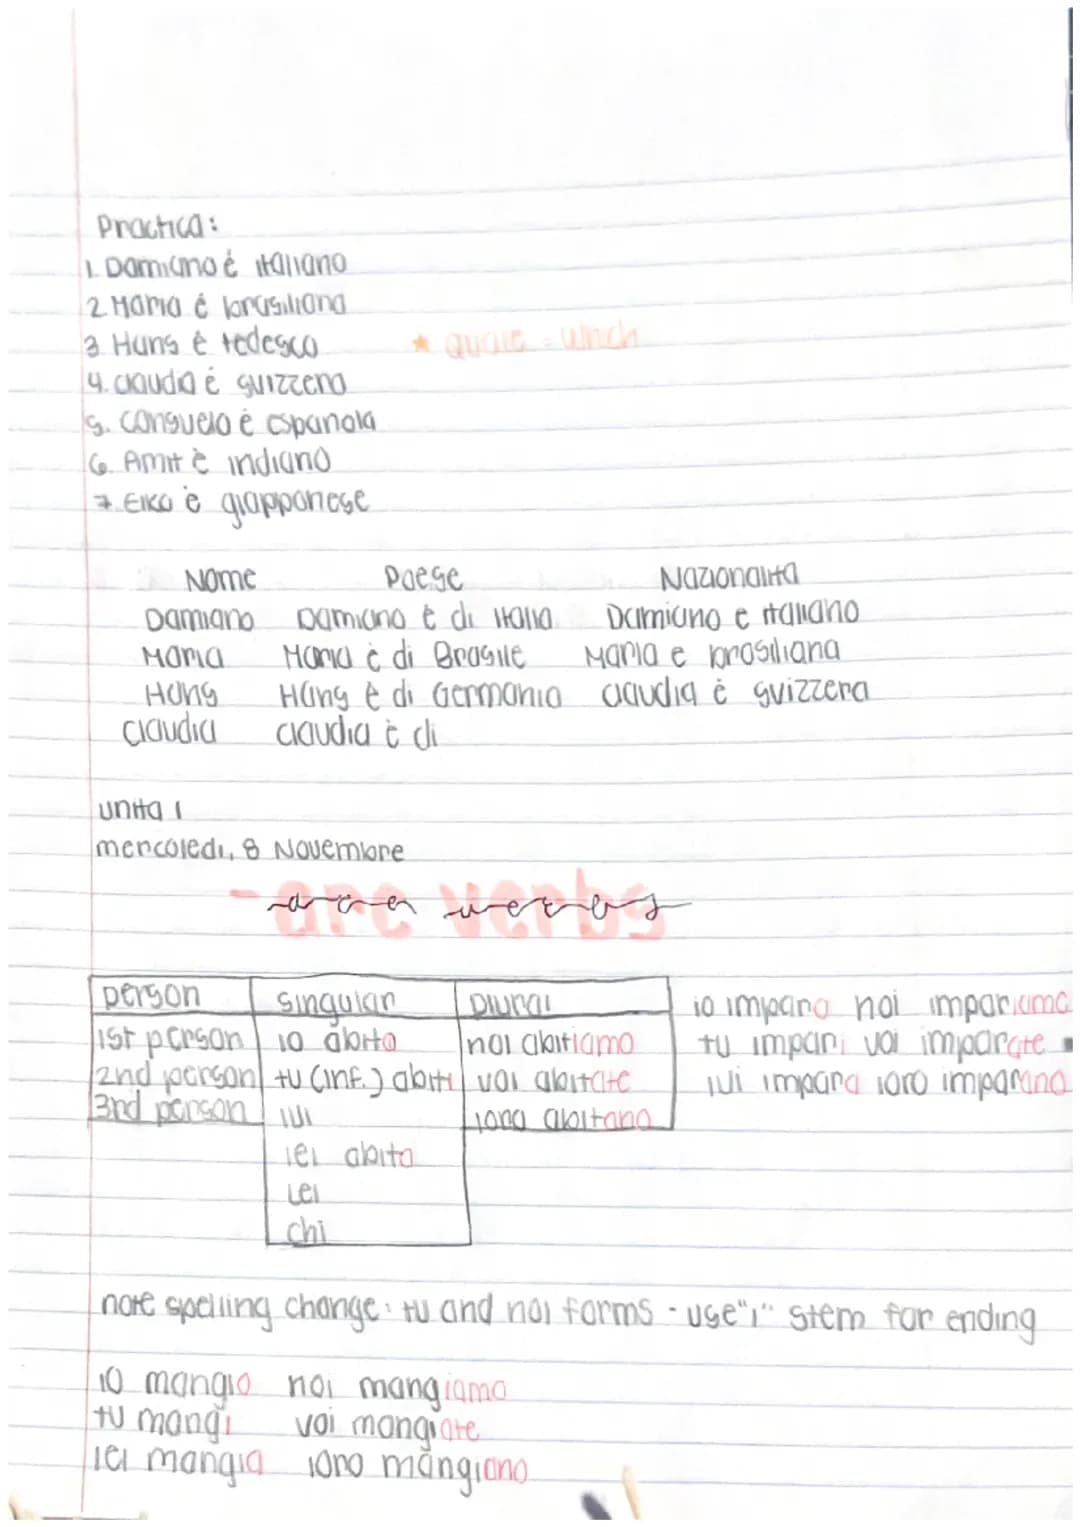 Practica:
1. Damiano è italiano
2. Maria è brasiliana
3. Hans è tedesco
★ quale = which
4. Claudia è svizzera
5. Consuelo è espanola
6. Amit è indiano
7. Eiko è giapponese
Nome Paese Nazionalita
Damiano Damiano è di Italia. Damiano e italiano
Maria Maria è di Brasile Maria e brasiliana
Hans Hans è di Germania Claudia è svizzera
Claudia Claudia è di
unita 1
mercoledi, 8 Novembre
-are verbs
person singular plural
1st person io abito noi abitiamo
2nd person tu (inf.) abiti voi abitate
3rd person lui loro abitano
lei abita
Lei
chi
io imparo noi impariamo
tu impari voi imparate
lui impara loro imparano
note spelling change: tu and noi forms - use "i" stem for ending
io mangio noi mangiamo
tu mangi voi mangiate
lei mangia loro mangiano